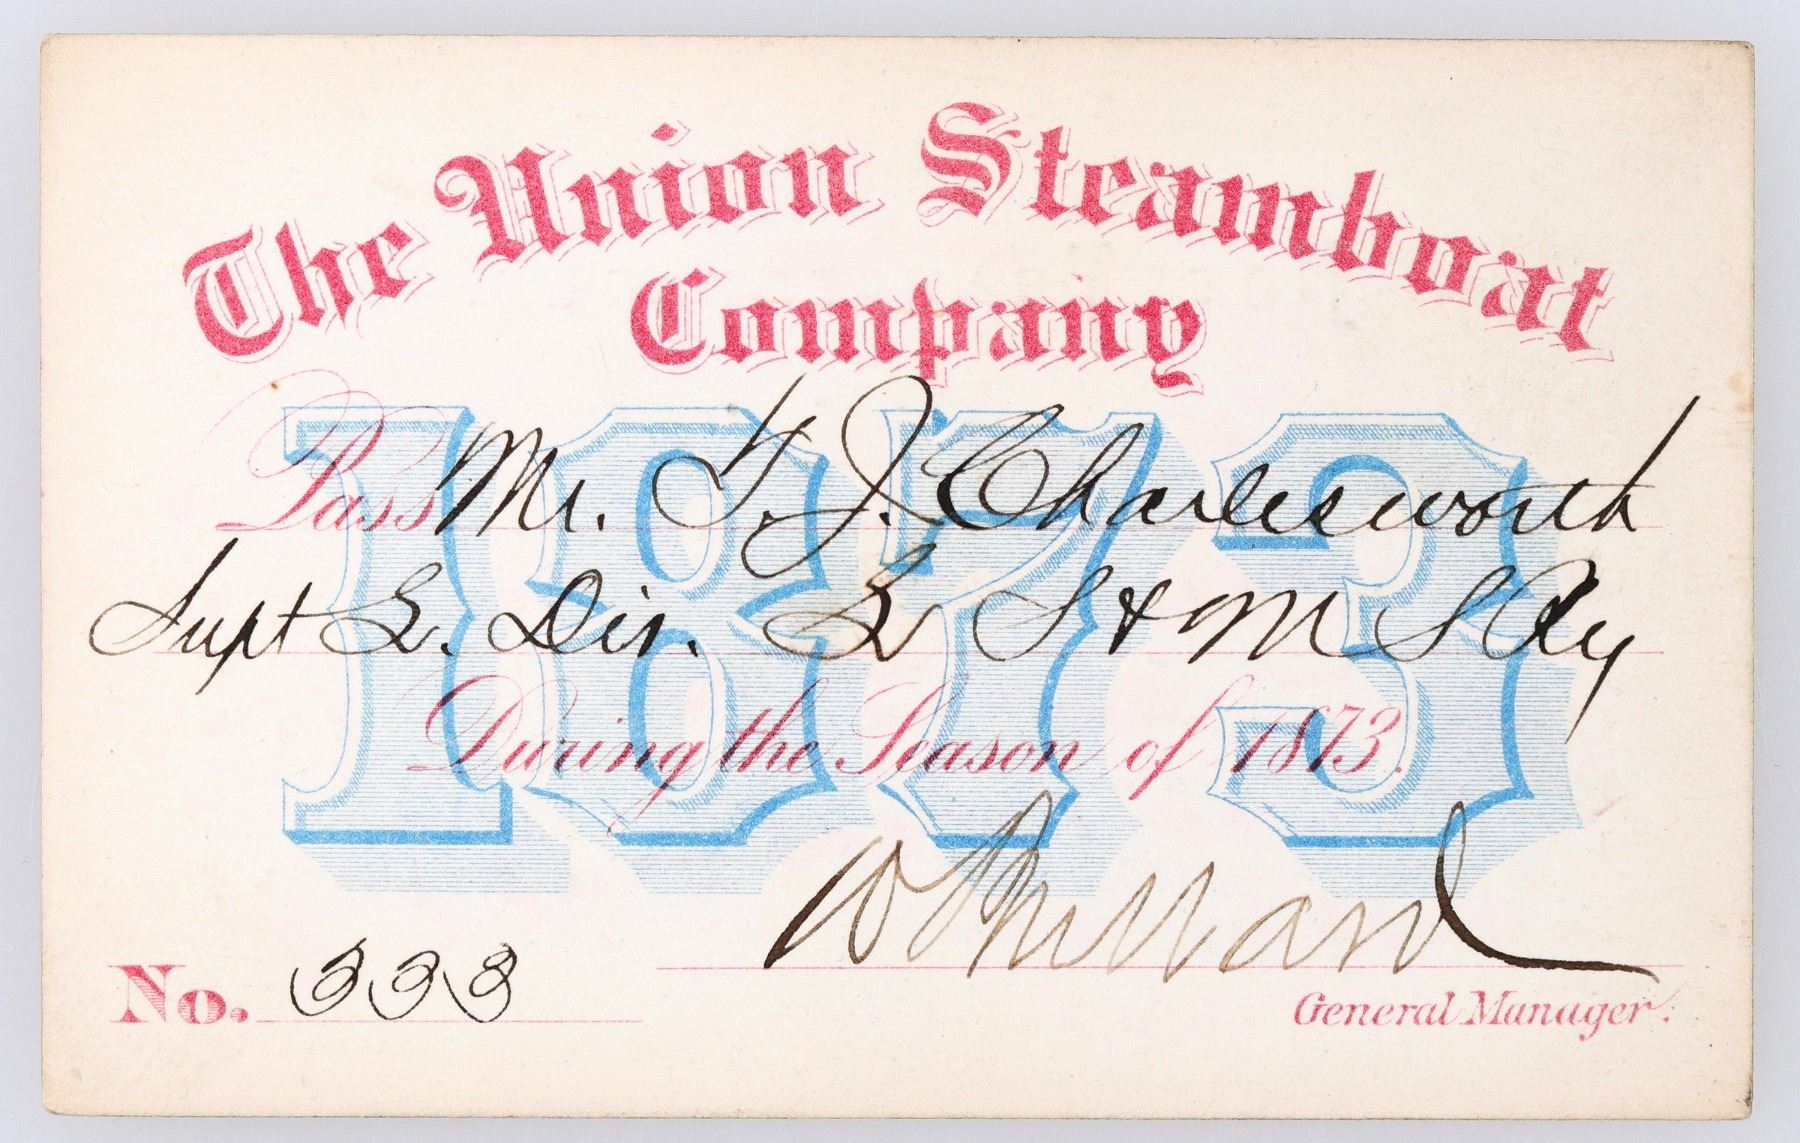 The Union Steamboat
Company
1873
Pass Mr. F. J. Charlesworth
Supt E. Div. L S & M S Ry
During the Season of 1873.
General Manager.
No. 333